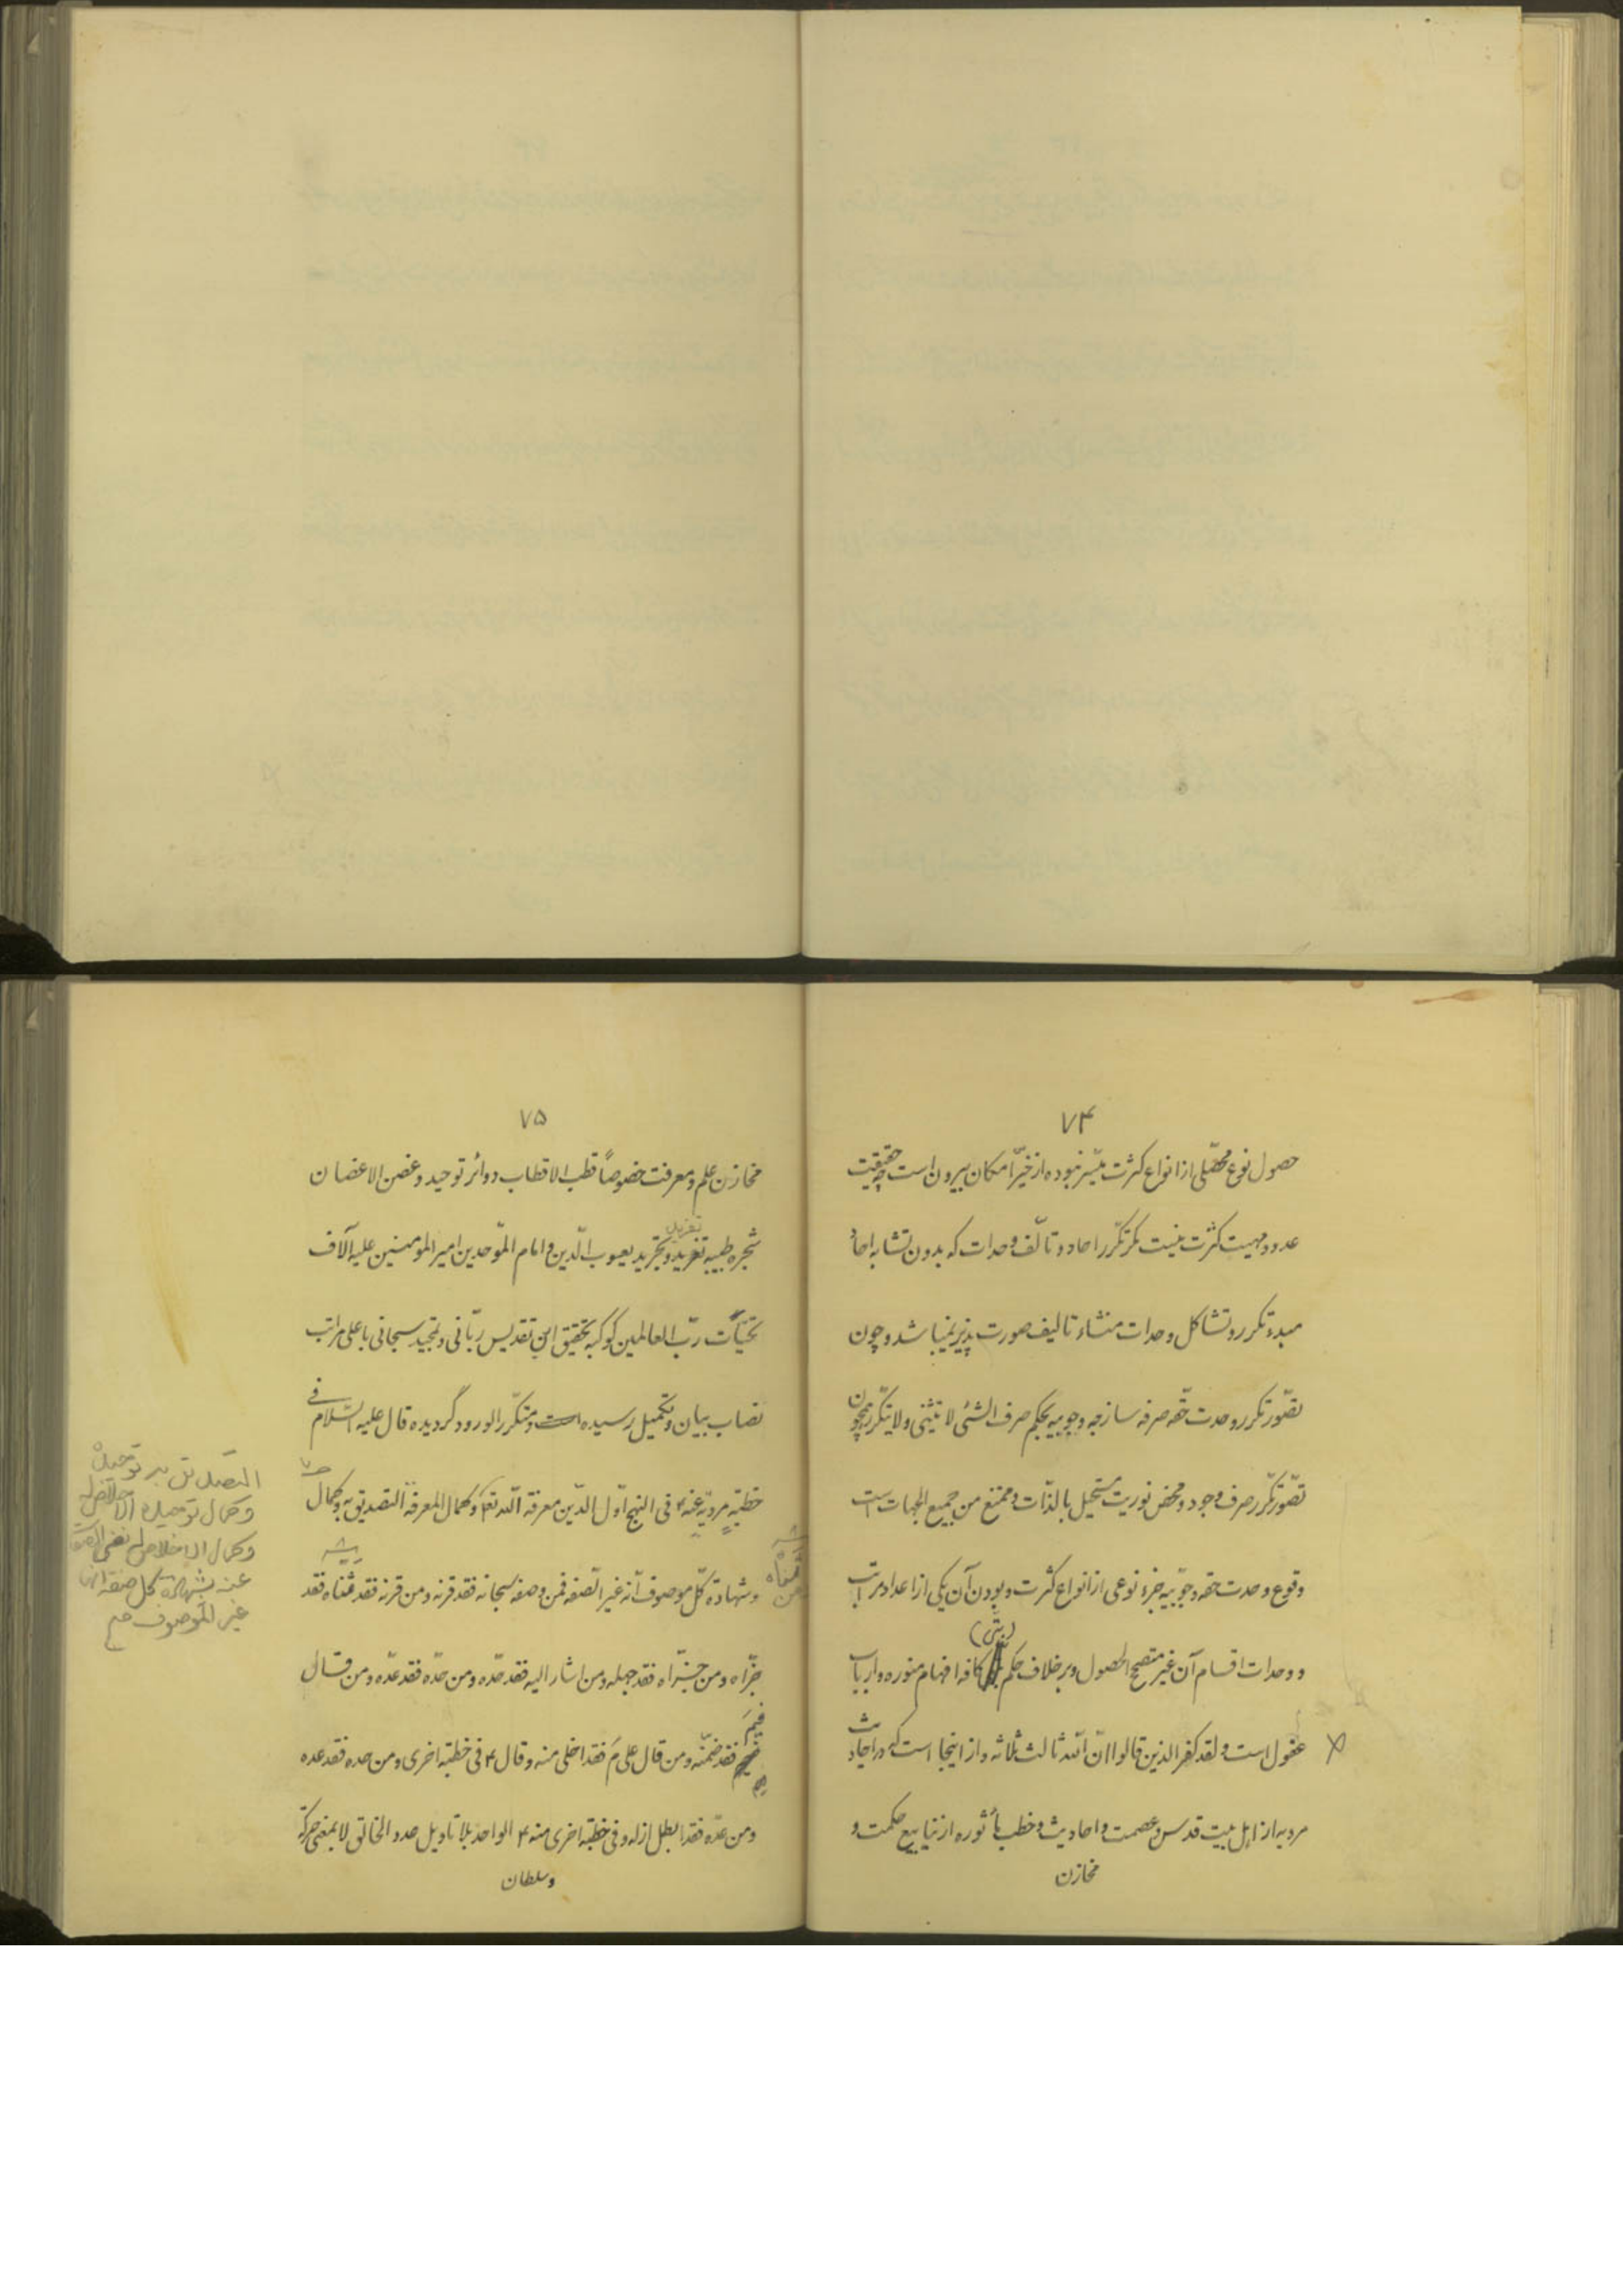 ۷۴
حصول نوع محصّلی از انواع کثرت میسّر نبوده از خیّر امکان بیرون است چه حقیقت
عدد و مهیت کثرت نیست مگر تکرّر احاد و تألّف وحدات که بدون تشابه احاد
مبدء تکرر و تشاکل وحدات منشاء تالیف صورت پذیر نمیباشد و چون
تصّور تکرر وحدت حقّه صرفه ساذجه وجوبیه بحکم صرف الشئی لا یتثنی و لا یتکّرر همچون
تصّور تکّرر صرف وجود و محض نوریت مستحیل بالذّات و ممتنع من جمیع الجهات است
وقوع وحدت حقه وجوّبیه جزء نوعی از انواع کثرت و بودن آن یکی از اعداد مراتب
و وحدات اقسام آن غیر متصحح الحصول و بر خلاف حکم (بتّی) کافه افهام منوره و ارباب
عقول است و لقد کفر الذین قالوا انّ اللّه ثالث ثلاثه و از اینجا است که در احادیث
مرویه از اهل بیت قدس و عصمت و احادیث و خطب مأثوره از ینابیع حکمت و
مخازن
۷۵
مخازن علم و معرفت خصوصاً قطب الاقطاب دوائر توحید و غصن الاغصان
شجره طیبه تفرید و تجرید یعسوب الدّین و امام الموّحدین امیر المؤمنین علیه آلاف
تفرید
تحیّات ربّ العالمین کوکبه تحقیق این تقدیس ربّانی و تمجید سبحانی باعلی مراتب
نصاب بیان و تکمیل رسیده است و متکّرر الورود گردیده قال علیه السّلام فی
خطبّهٍ مرویّهٍ عنه ۴ فی النهج اوّل الدّین معرفة اللّه تع و کمال المعرفة التصدیق به و کمال
التصدیق به توحیده
وکمال توحیده الاخلاص له
وکمال الاخلاص له نفی الصفات
عنه بشهادة کل صفة انها
غیر الموصوف
و شهادة کلّ موصوف أنه غیر الصّفه فمن وصفه سبحانه فقد قرنه و من قرنه فقد ثنّاه فقد
جزّاه و من جزّاه فقد جهله و من اشار الیه فقد حدّه و من حدّه فقد عدّه و من قال
فیمَ فقد ضمّنه و من قال علی مَ فقد اخلی منه و قال ۴ فی خطبّه اخری و من حده فقد عده
و من عدّه فقد ابطل ازله و فی خطبّه اخری منه ۴ الواحد بلا تاویل عدد الخالق لا بمعنی حرکة
و سلطان